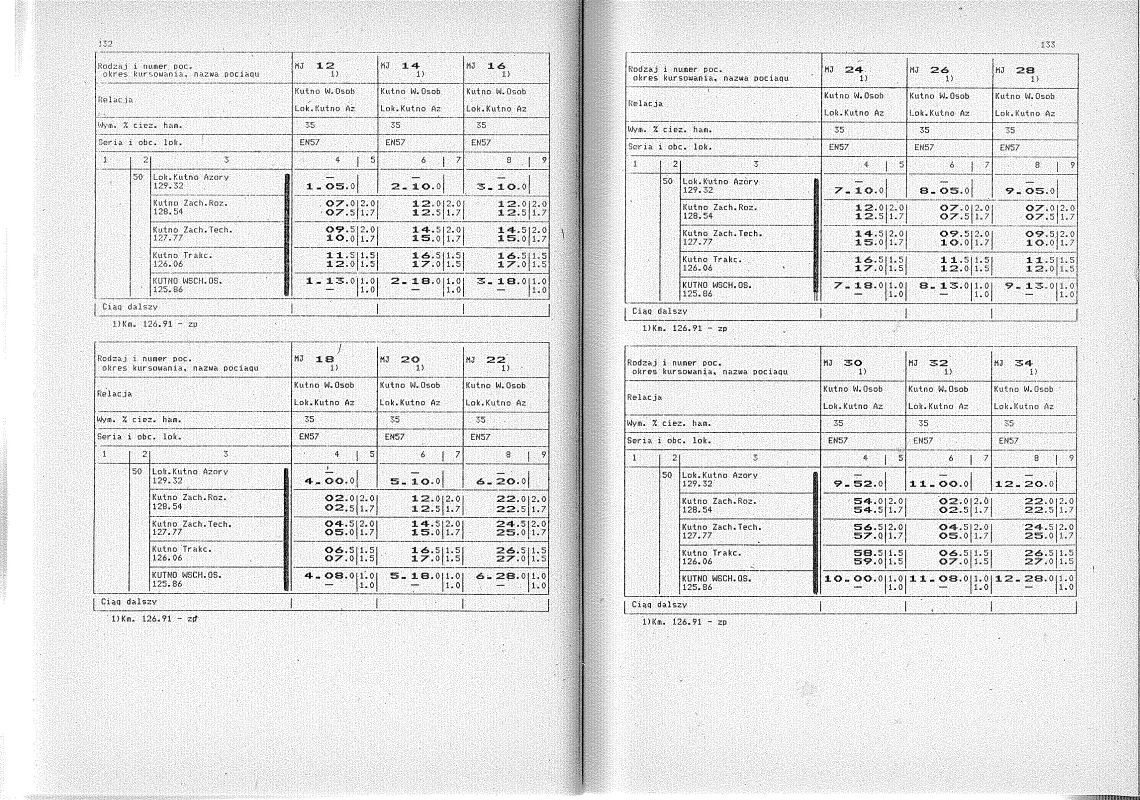 132
Rodzaj i numer poc. MJ 12 MJ 14 MJ 16
okres kursowania, nazwa pociagu 1) 1) 1)
Relacja Kutno W.Osob Kutno W.Osob Kutno W.Osob
Lok.Kutno Az Lok.Kutno Az Lok.Kutno Az
Wym. % ciez. ham. 35 35 35
Seria i obc. lok. EN57 EN57 EN57
1 2 3 4 5 6 7 8 9
50 Lok.Kutno Azory — — —
129.32 1-05.0 2-10.0 3-10.0
Kutno Zach.Roz. 07.0 2.0 12.0 2.0 12.0 2.0
128.54 07.5 1.7 12.5 1.7 12.5 1.7
Kutno Zach.Tech. 09.5 2.0 14.5 2.0 14.5 2.0
127.77 10.0 1.7 15.0 1.7 15.0 1.7
Kutno Trakc. 11.5 1.5 16.5 1.5 16.5 1.5
126.06 12.0 1.5 17.0 1.5 17.0 1.5
KUTNO WSCH.OS. 1-13.0 1.0 2-18.0 1.0 3-18.0 1.0
125.86 — 1.0 — 1.0 — 1.0
Ciąg dalszy
1)Km. 126.91 - zp
Rodzaj i numer poc. MJ 18 MJ 20 MJ 22
okres kursowania, nazwa pociagu 1) 1) 1)
Relacja Kutno W.Osob Kutno W.Osob Kutno W.Osob
Lok.Kutno Az Lok.Kutno Az Lok.Kutno Az
Wym. % ciez. ham. 35 35 35
Seria i obc. lok. EN57 EN57 EN57
1 2 3 4 5 6 7 8 9
50 Lok.Kutno Azory — — —
129.32 4-00.0 5-10.0 6-20.0
Kutno Zach.Roz. 02.0 2.0 12.0 2.0 22.0 2.0
128.54 02.5 1.7 12.5 1.7 22.5 1.7
Kutno Zach.Tech. 04.5 2.0 14.5 2.0 24.5 2.0
127.77 05.0 1.7 15.0 1.7 25.0 1.7
Kutno Trakc. 06.5 1.5 16.5 1.5 26.5 1.5
126.06 07.0 1.5 17.0 1.5 27.0 1.5
KUTNO WSCH.OS. 4-08.0 1.0 5-18.0 1.0 6-28.0 1.0
125.86 — 1.0 — 1.0 — 1.0
Ciąg dalszy
1)Km. 126.91 - zp
133
Rodzaj i numer poc. MJ 24 MJ 26 MJ 28
okres kursowania, nazwa pociagu 1) 1) 1)
Relacja Kutno W.Osob Kutno W.Osob Kutno W.Osob
Lok.Kutno Az Lok.Kutno Az Lok.Kutno Az
Wym. % ciez. ham. 35 35 35
Seria i obc. lok. EN57 EN57 EN57
1 2 3 4 5 6 7 8 9
50 Lok.Kutno Azory — — —
129.32 7-10.0 8-05.0 9-05.0
Kutno Zach.Roz. 12.0 2.0 07.0 2.0 07.0 2.0
128.54 12.5 1.7 07.5 1.7 07.5 1.7
Kutno Zach.Tech. 14.5 2.0 09.5 2.0 09.5 2.0
127.77 15.0 1.7 10.0 1.7 10.0 1.7
Kutno Trakc. 16.5 1.5 11.5 1.5 11.5 1.5
126.06 17.0 1.5 12.0 1.5 12.0 1.5
KUTNO WSCH.OS. 7-18.0 1.0 8-13.0 1.0 9-13.0 1.0
125.86 — 1.0 — 1.0 — 1.0
Ciąg dalszy
1)Km. 126.91 - zp
Rodzaj i numer poc. MJ 30 MJ 32 MJ 34
okres kursowania, nazwa pociagu 1) 1) 1)
Relacja Kutno W.Osob Kutno W.Osob Kutno W.Osob
Lok.Kutno Az Lok.Kutno Az Lok.Kutno Az
Wym. % ciez. ham. 35 35 35
Seria i obc. lok. EN57 EN57 EN57
1 2 3 4 5 6 7 8 9
50 Lok.Kutno Azory — — —
129.32 9-52.0 11-00.0 12-20.0
Kutno Zach.Roz. 54.0 2.0 02.0 2.0 22.0 2.0
128.54 54.5 1.7 02.5 1.7 22.5 1.7
Kutno Zach.Tech. 56.5 2.0 04.5 2.0 24.5 2.0
127.77 57.0 1.7 05.0 1.7 25.0 1.7
Kutno Trakc. 58.5 1.5 06.5 1.5 26.5 1.5
126.06 59.0 1.5 07.0 1.5 27.0 1.5
KUTNO WSCH.OS. 10-00.0 1.0 11-08.0 1.0 12-28.0 1.0
125.86 — 1.0 — 1.0 — 1.0
Ciąg dalszy
1)Km. 126.91 - zp